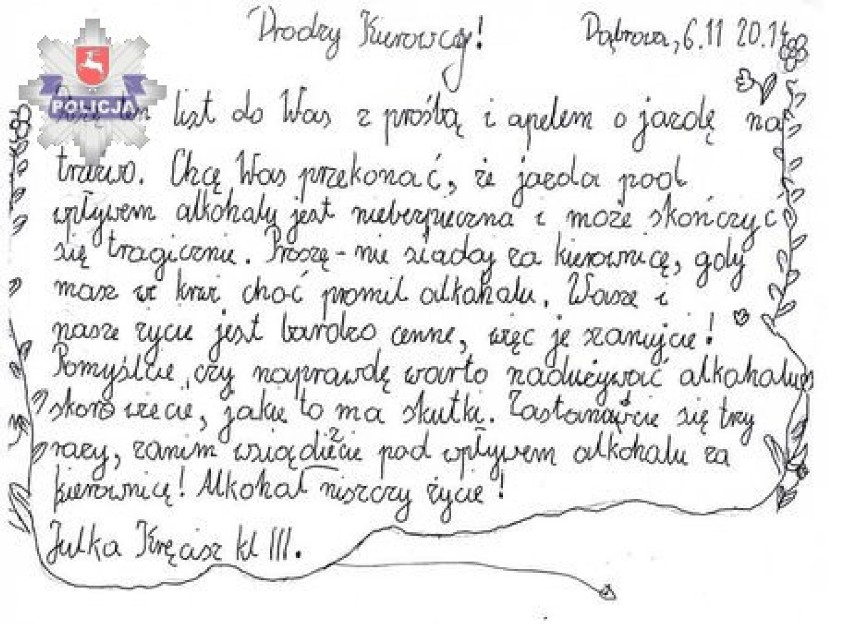 Drodzy Kierowcy! Dąbrowa, 6.11 2014
POLICJA
Piszę ten list do Was z prośbą i apelem o jazdę na
trzeźwo. Chcę Was przekonać, że jazda pod
wpływem alkoholu jest niebezpieczna i może skończyć
się tragicznie. Proszę - nie siadaj za kierownicę, gdy
masz w krwi choć promil alkoholu. Wasze i
nasze życie jest bardzo cenne, więc je szanujcie!
Pomyślcie, czy naprawdę warto nadużywać alkoholu,
skoro wiecie, jakie to ma skutki. Zastanówcie się trzy
razy, zanim wsiądziecie pod wpływem alkoholu za
kierownicę! Alkohol niszczy życie!
Julka Kręcisz kl III.